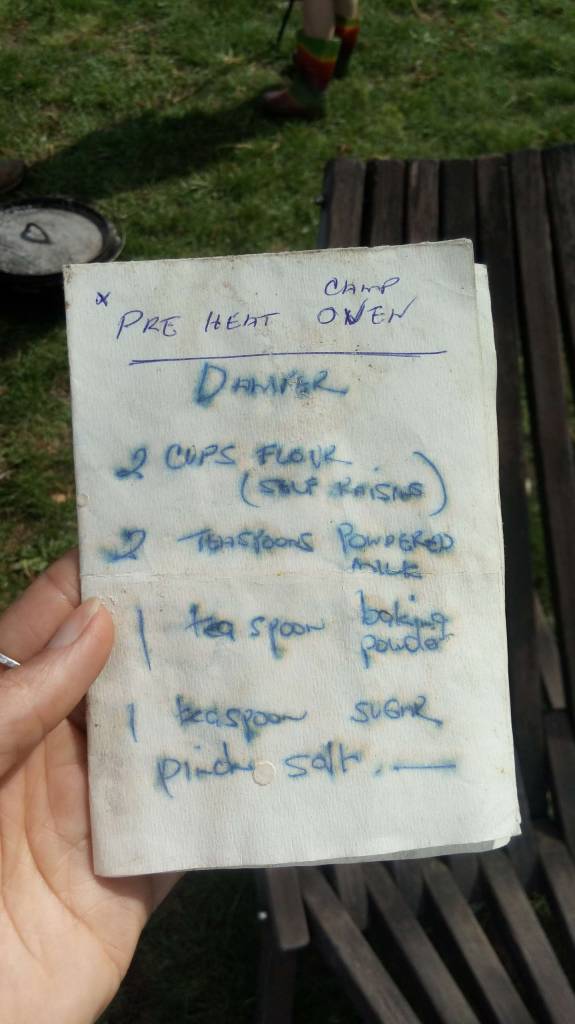 x CAMP
PRE HEAT OVEN
DAMPER
2 CUPS FLOUR
(SELF RAISING)
2 TEASPOONS POWDERED
MILK
1 teaspoon baking
powder
1 teaspoon SUGAR
pinch salt.—